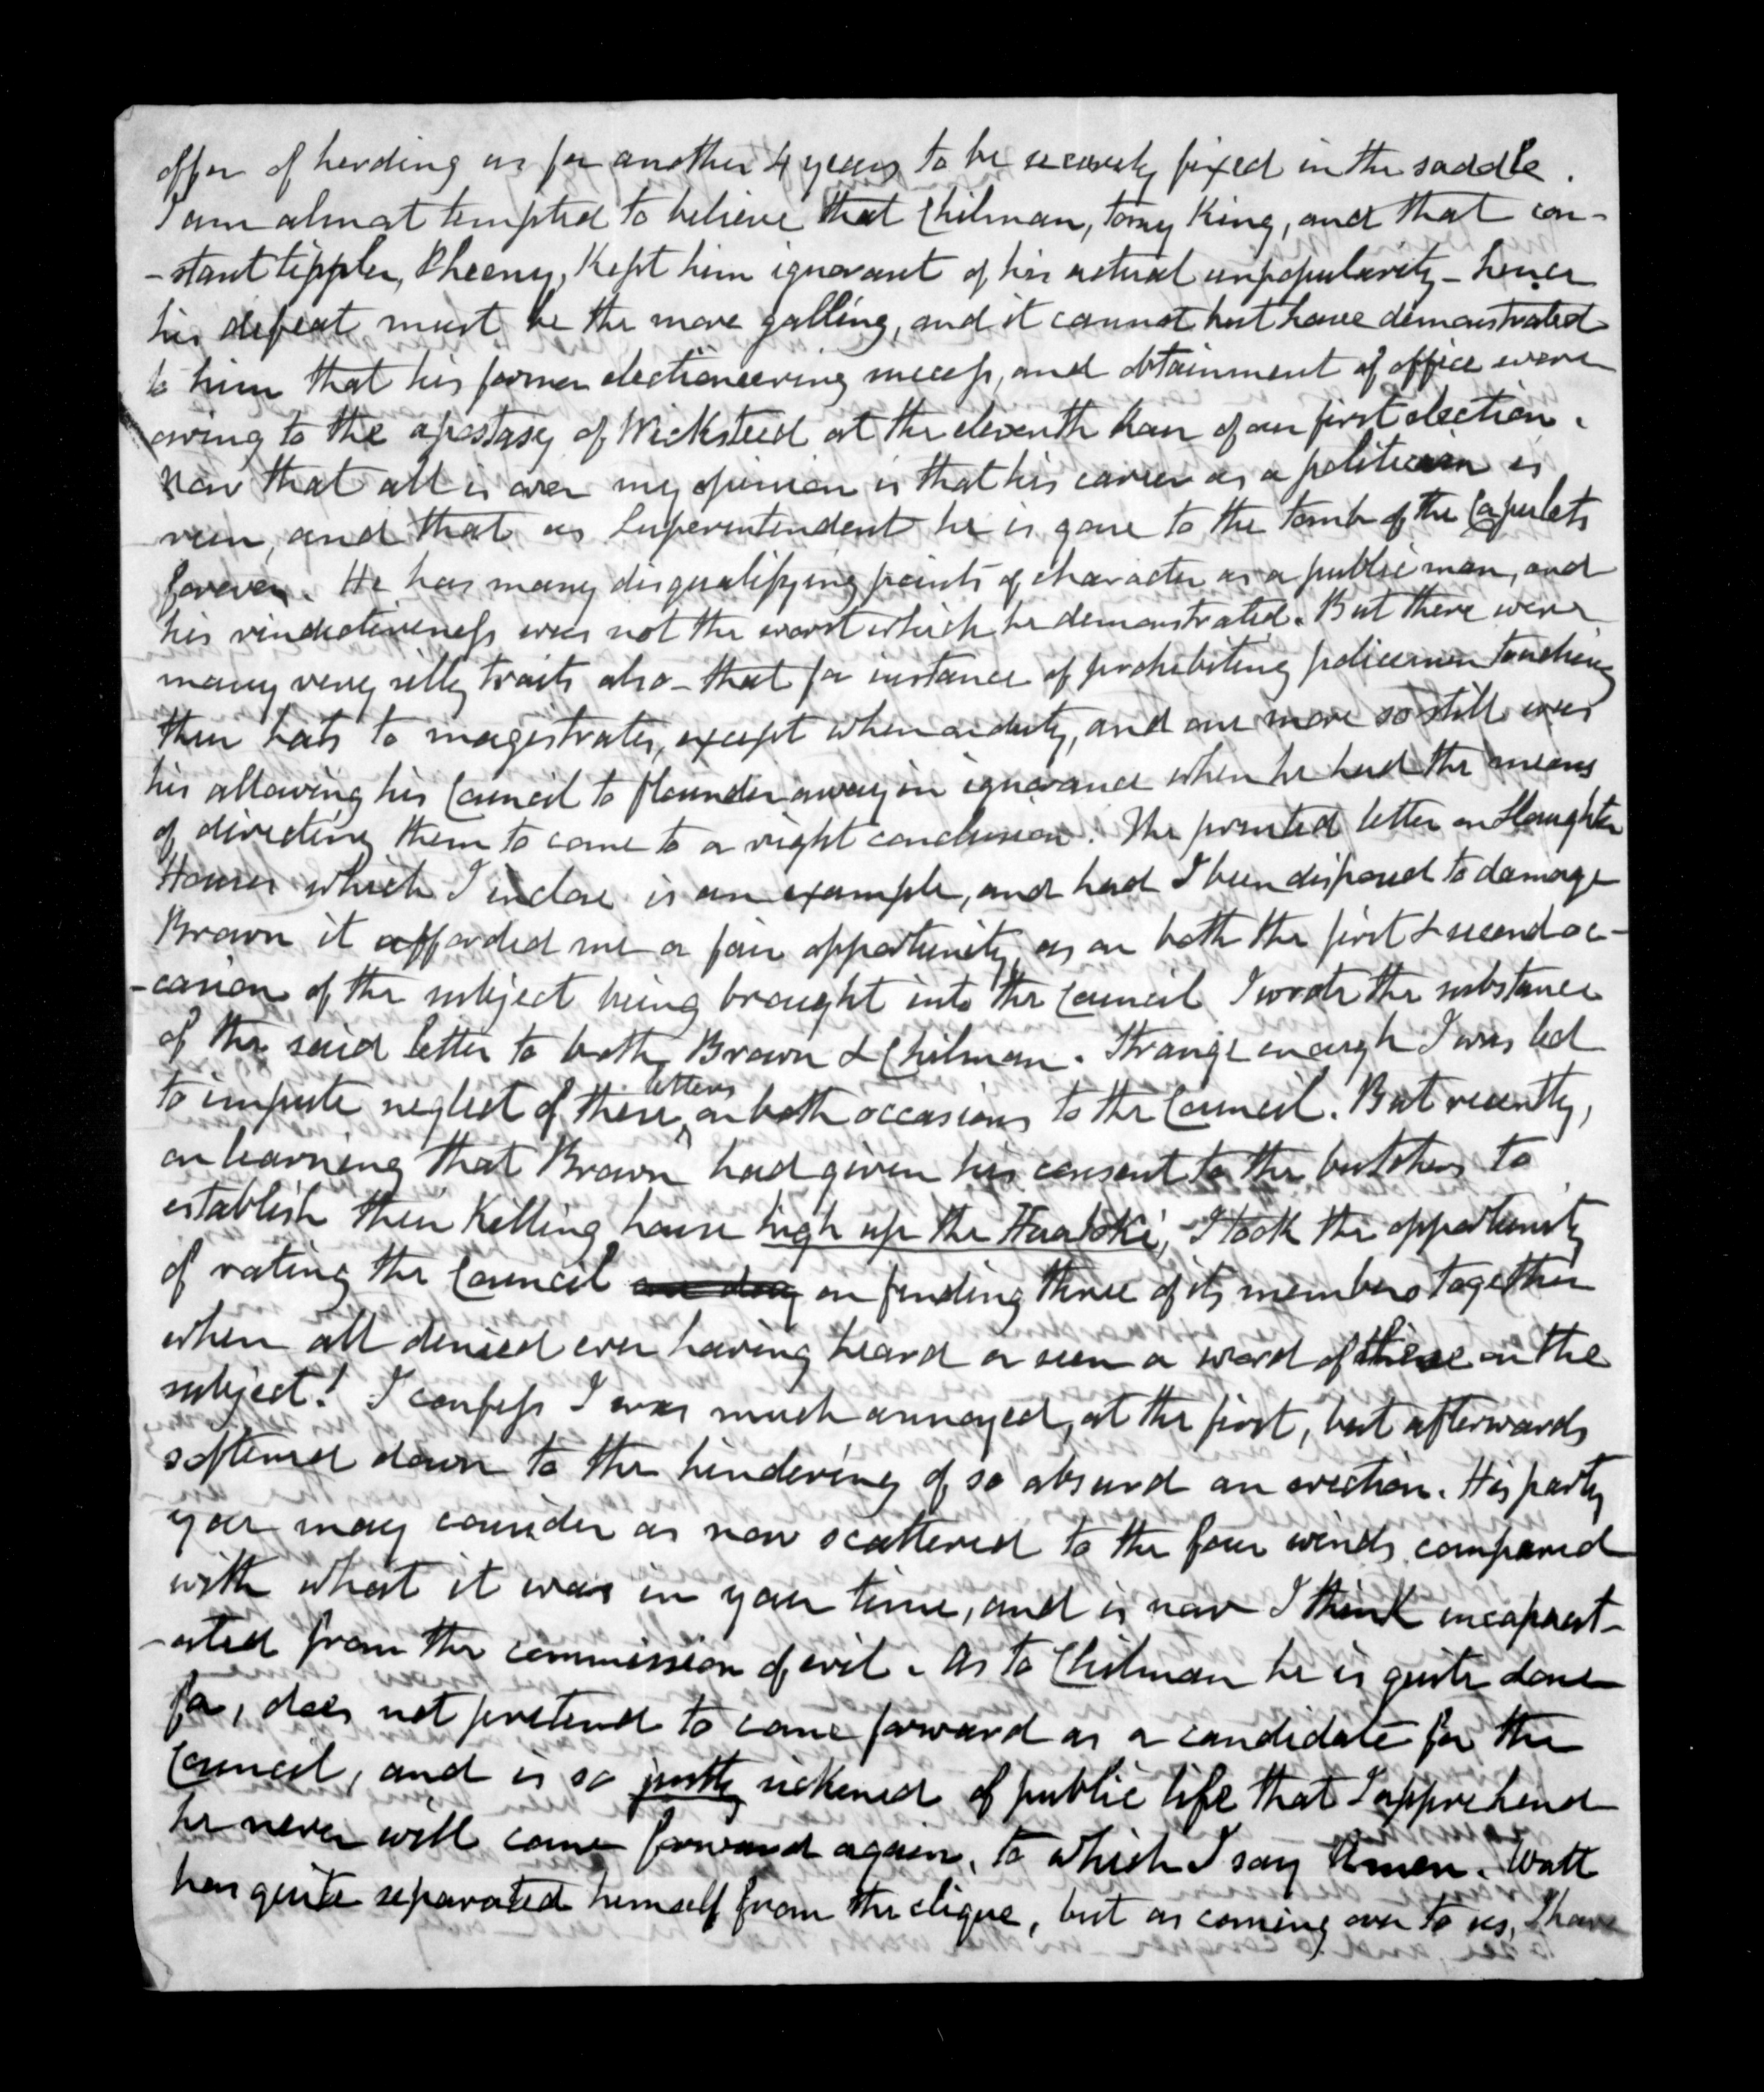 offer of herding us for another 4 years to be securely fixed in the saddle.
I am almost tempted to believe that Chilman, tony King, and that con-
-stant tippler, Pheeny, Kept him ignorant of his actual unpopularity - hence
his defeat must be the more galling, and it cannot but have demonstrated
to him that his former electioneering success, and obtainment of office were
owing to the apostasy of Wicksteed at the eleventh hour of our first election.
Now that all is over my opinion is that his career as a politician is
run, and that as Superintendent he is gone to the tomb of the Capulets
forever. He has many disqualifying points of character as a public man, and
his vindictiveness was not the worst which he demonstrated. But there were
many very silly traits also - that for instance of prohibiting policemen touching
their hats to magistrates, except when on duty, and one more so still was
his allowing his Council to flounder away in ignorance when he had the means
of directing them to come to a right conclusion. The printed letter on Slaughter
Houses which I inclose is an example, and had I been disposed to damage
Brown it afforded me a fair opportunity, as on both the first & second oc-
-casion of the subject being brought into the Council I wrote the substance
of the said letter to both Brown & Chilman. Strange enough I was led
to impute neglect of these letters on both occasions to the Council. But recently,
on learning that Brown had given his consent to the butchers to
establish their Killing house high up the Huatoki, I took the opportunity
of rating the Council one day on finding three of its members together
when all denied ever having heard or seen a word of these on the
subject! I confess I was much annoyed, at the first, but afterwards
softened down to the hindering of so absurd an erection. His party
you may consider as now scattered to the four winds compared
with what it was in your time, and is now I think incapacit-
-ated from the commission of evil. As to Chilman he is quite done
for, does not pretend to come forward as a candidate for the
Council, and is so justly sickened of public life that I apprehend
he never will come forward again, to which I say Amen. Watt
has quite separated himself from the clique, but as coming over to us, I have